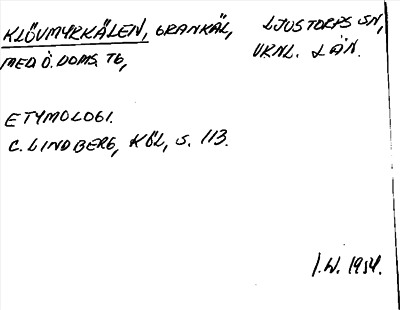 KLÖVMYRKÄLEN, GRANKÄL, LJUSTORPS SN,
MED Ö. DOMS. TG, VRNL. LÄN.
ETYMOLOGI.
C. LINDBERG, KÖL, S. 113.
I.W. 1954.